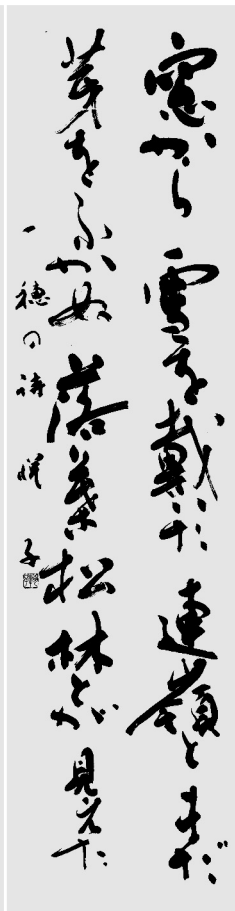 窓から雪を戴いた連嶺とまだ
芽をふかぬ落葉松林とが見えた
一穂の詩 悦子